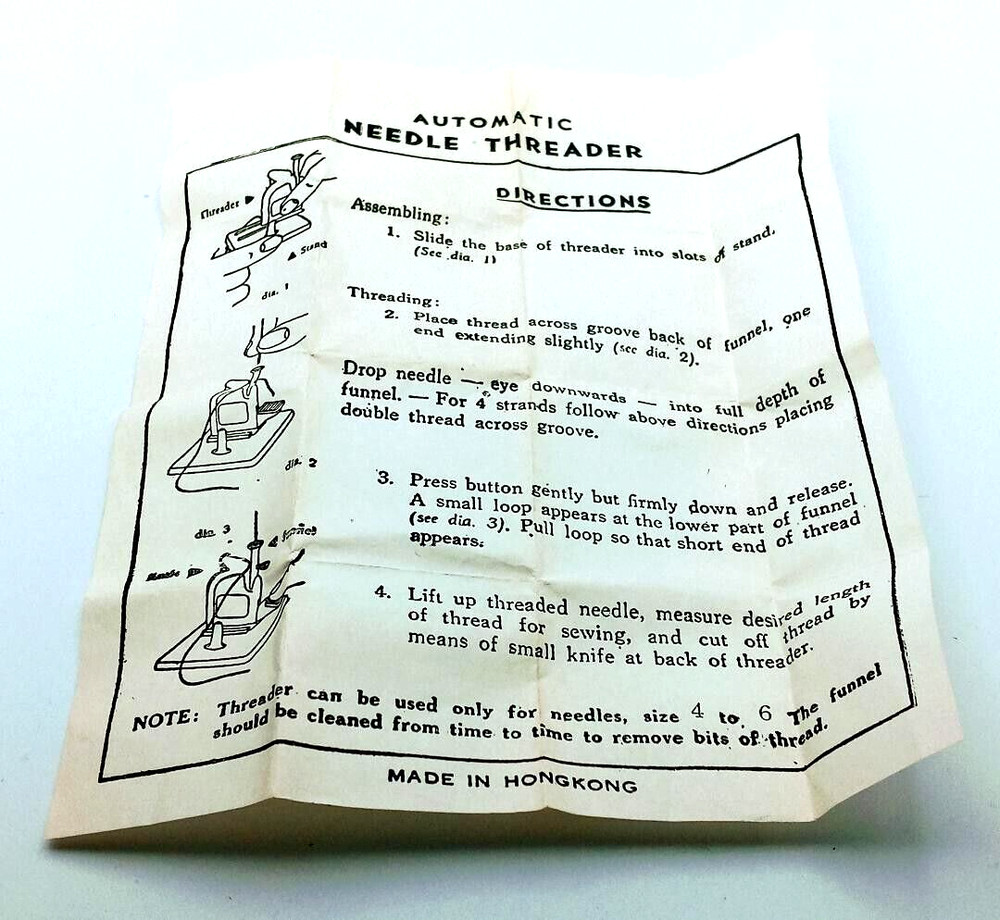 AUTOMATIC
NEEDLE THREADER
DIRECTIONS
Threader
Stand
dia. 1
Assembling:
1. Slide the base of threader into slots of stand.
(See dia. 1)
Threading:
2. Place thread across groove back of funnel, one
end extending slightly (see dia. 2).
Drop needle — eye downwards — into full depth of
funnel. — For 4 strands follow above directions placing
double thread across groove.
dia. 2
3. Press button gently but firmly down and release.
A small loop appears at the lower part of funnel
(see dia. 3). Pull loop so that short end of thread
appears.
dia. 3
4. Lift up threaded needle, measure desired length
of thread for sewing, and cut off thread by
means of small knife at back of threader.
NOTE: Threader can be used only for needles, size 4 to 6 The funnel
should be cleaned from time to time to remove bits of thread.
MADE IN HONGKONG